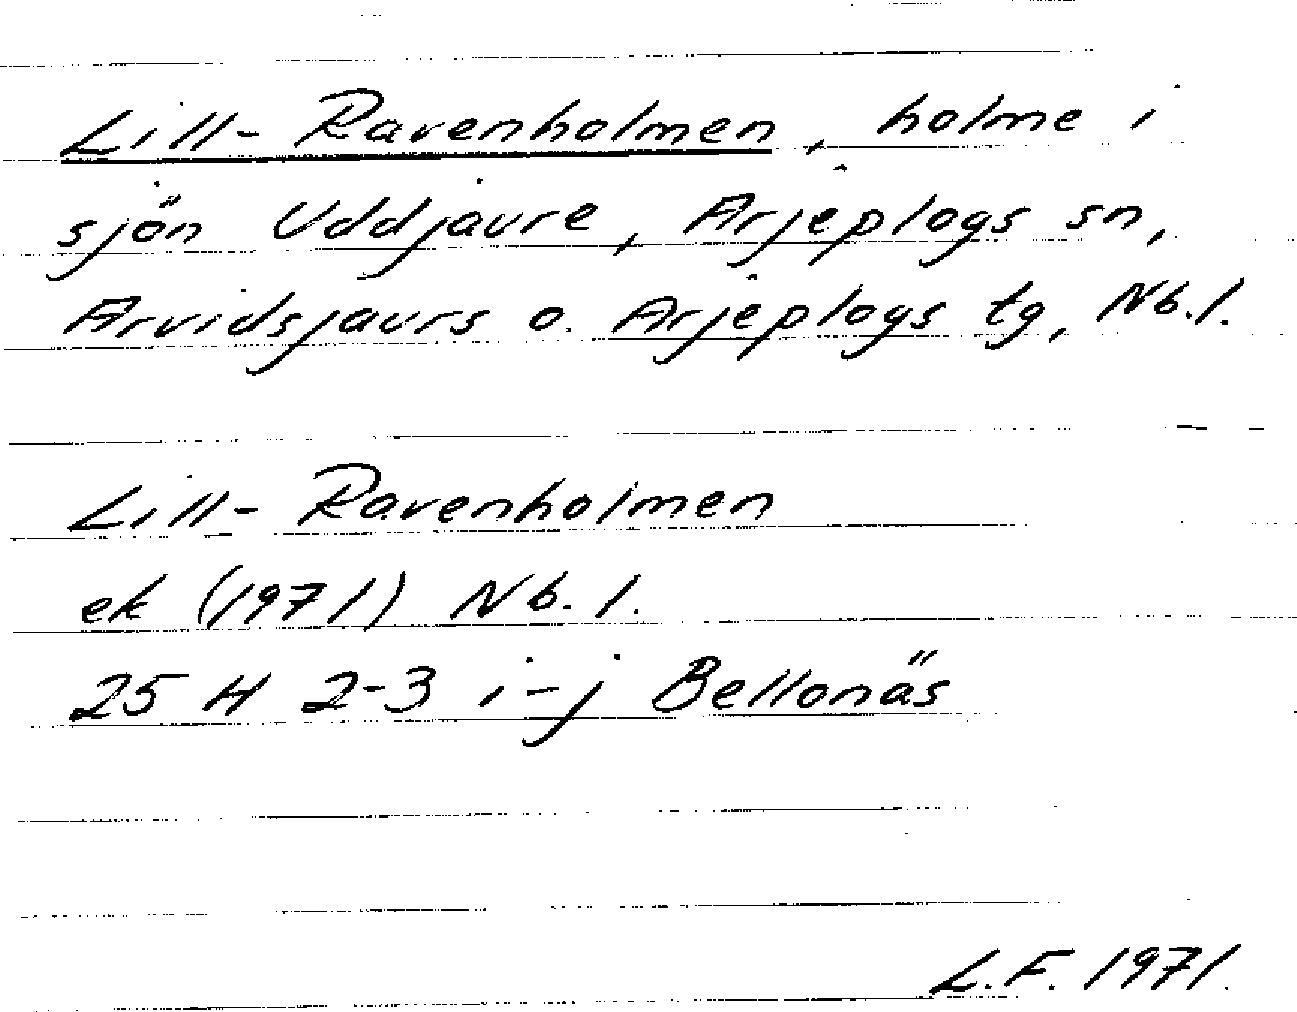 Lill-Ravenholmen, holme i
sjön Uddjaure, Arjeplogs sn,
Arvidsjaurs o. Arjeplogs tg, Nb.l.
Lill-Ravenholmen
ek (1971) Nb.l.
25 H 2-3 i-j Bellonäs
L.F. 1971.